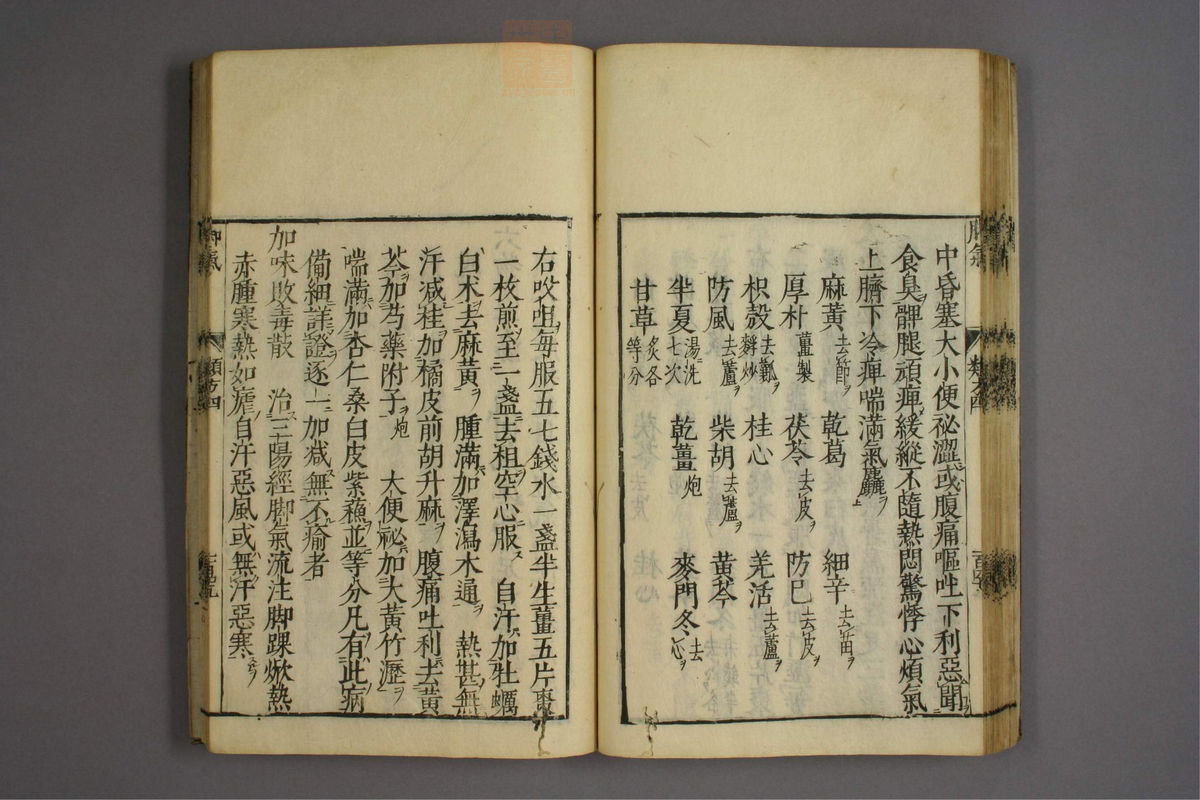 中昏塞大小便祕澀或腹痛嘔吐下利惡聞
食臭髀腿頑痺緩縱不隨熱悶驚悸心煩氣
上臍下冷痺喘滿氣麤
麻黃去節 乾葛 細辛去苗
厚朴薑製 茯苓去皮 防巳去皮
枳殼去瓤麩炒 桂心 羌活去蘆
防風去蘆 柴胡去蘆 黃芩
半夏湯洗七次 乾薑炮 麥門冬去心
甘草炙各等分
右㕮咀每服五七錢水一盞半生薑五片棗
一枚煎至一盞去柤空心服 自汗加牡蠣
白朮去麻黃 腫滿加澤瀉木通 熱甚無
汗減桂加橘皮前胡升麻 腹痛吐利去黃
芩加芍藥附子炮 大便祕加大黃竹瀝
喘滿加杏仁桑白皮紫蘓並等分凡有此病
備細詳證逐一加減無不瘉者
加味敗毒散 治三陽經脚氣流注脚踝焮熱
赤腫寒熱如瘧自汗惡風或無汗惡寒
脚氣 類方四